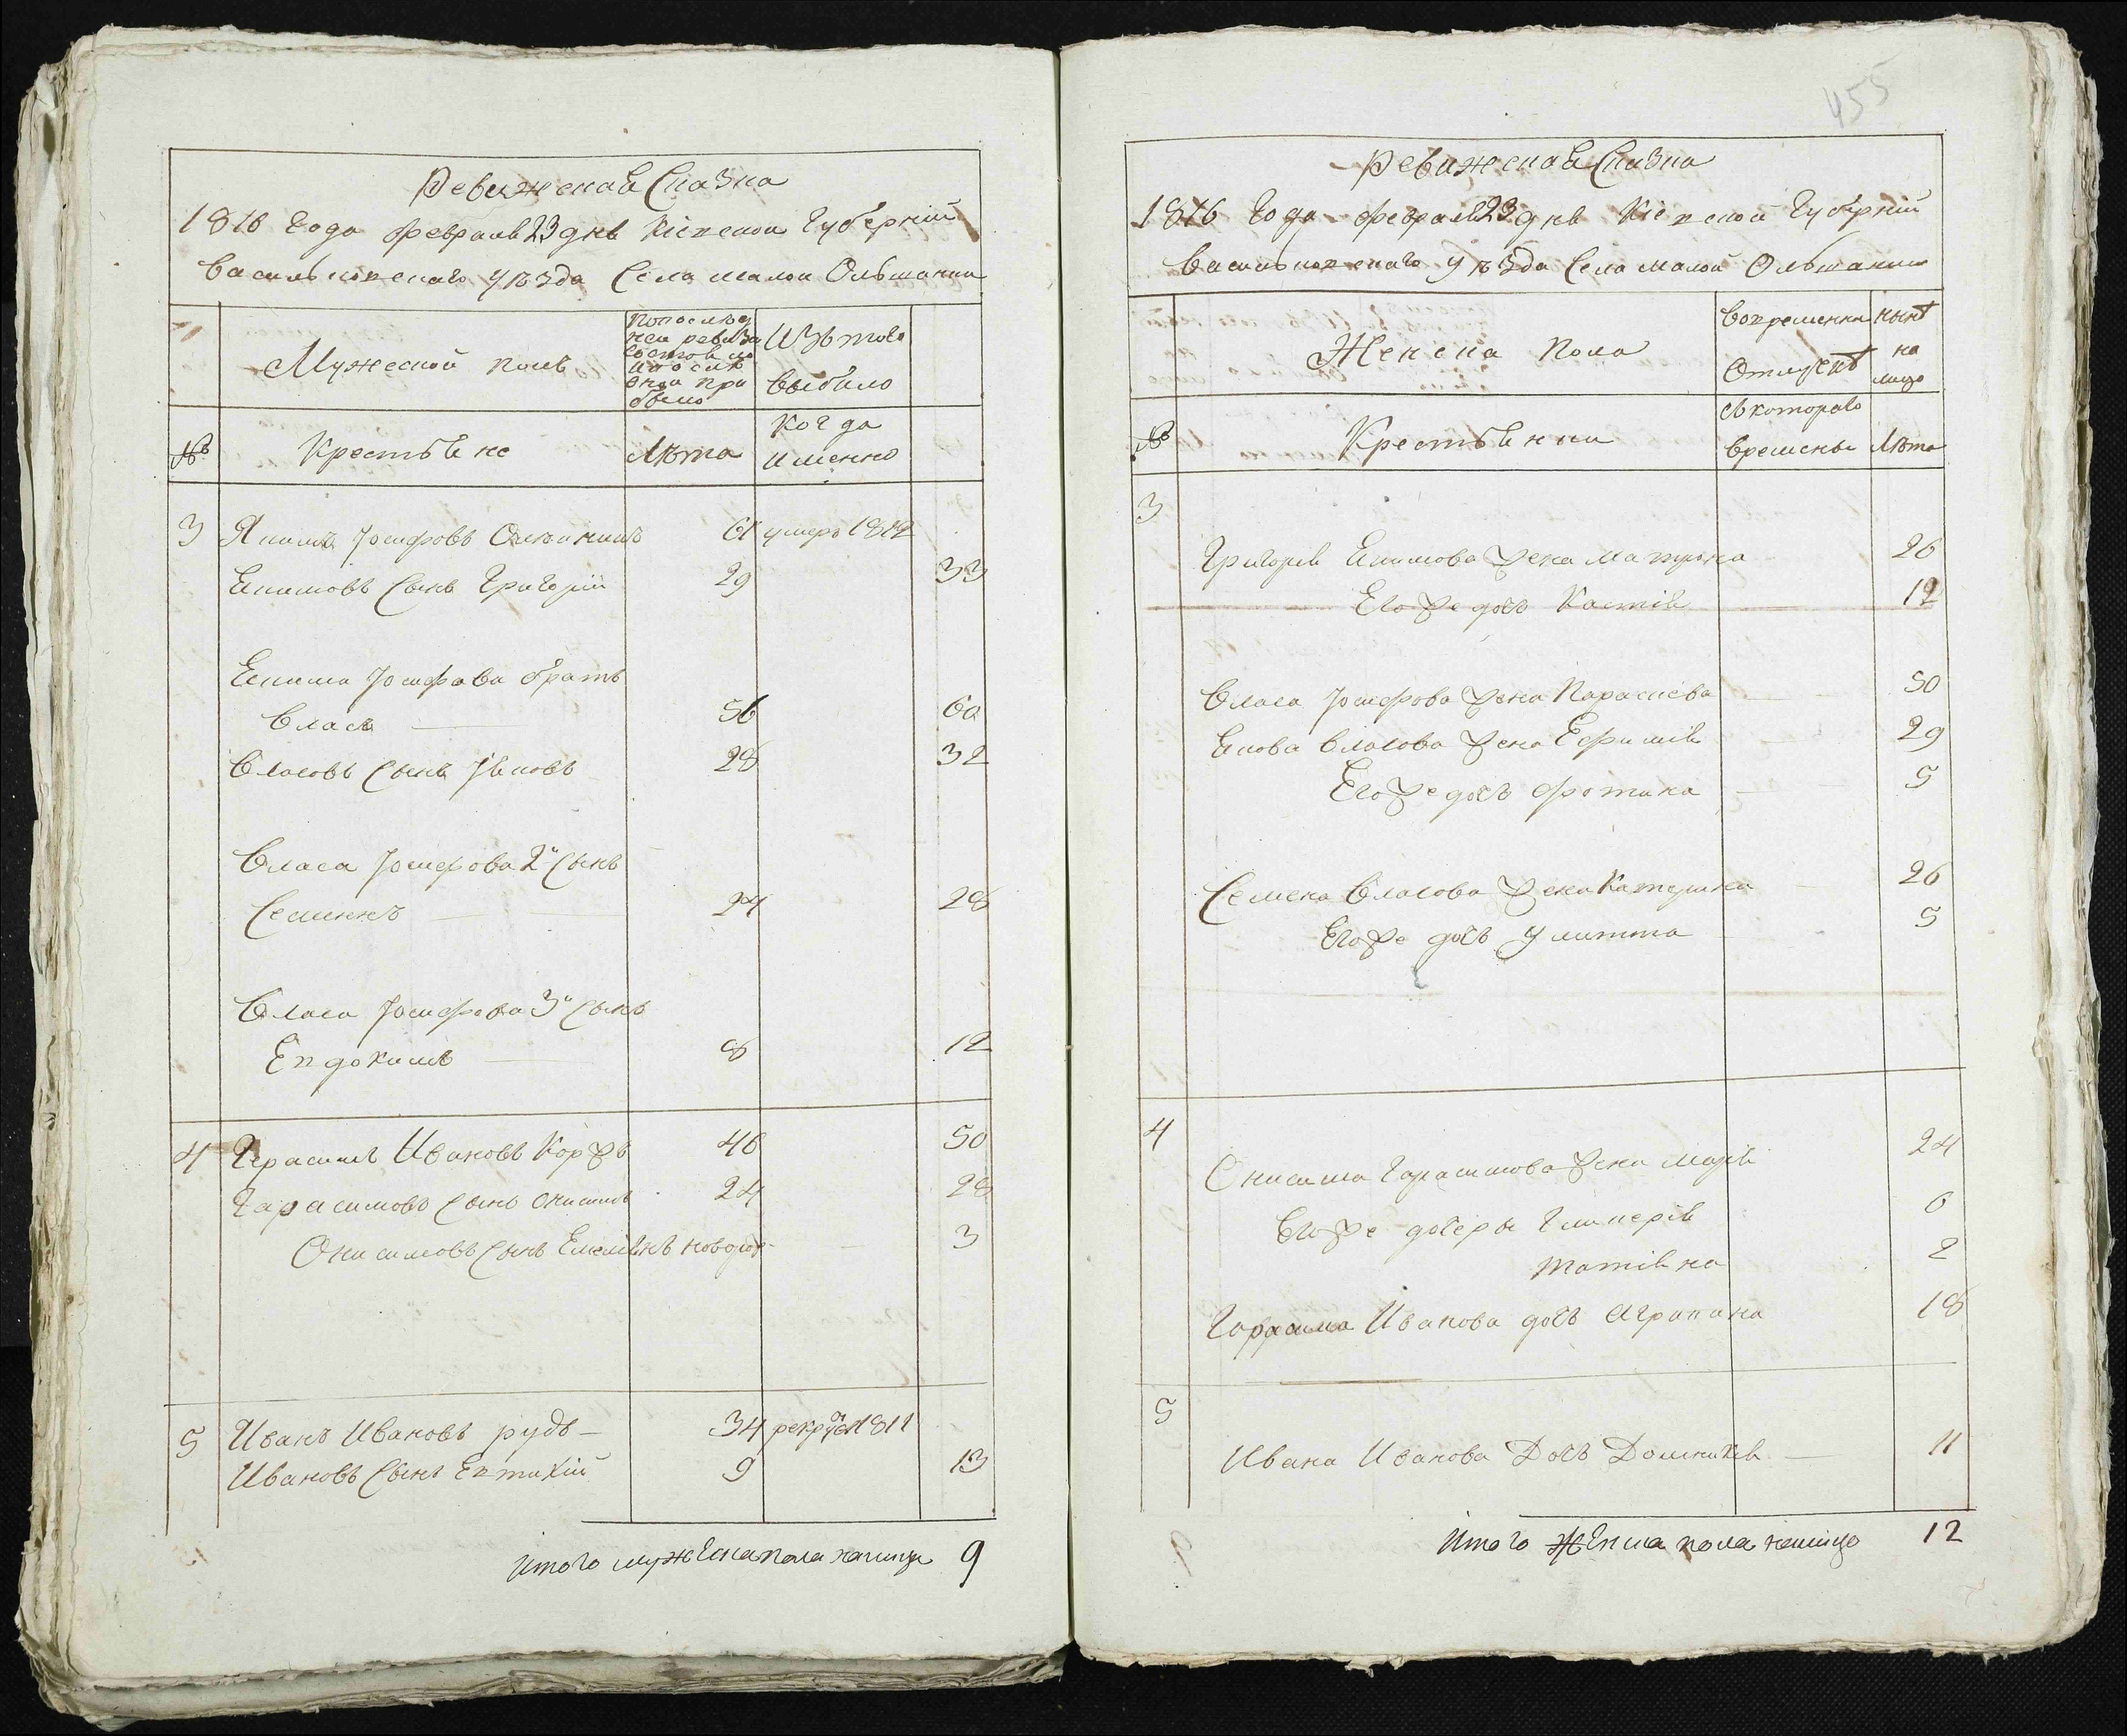 Ревижская Сказка
1816 года февраля 23 дня Кіевской Губерніи
Васильковскаго уѣзда Села малой Ольшанки
Мужеской полъ
По послед
ней ревизи
состояло
и после
оной при
было
Изъ того
выбыло
№ Крестьяне
Лѣта
Когда
именно
3 Якимъ Іосифовъ 61 умеръ 1812
Екимовъ Сынъ Григорій 29 33
Екима Іосифова братъ
Власъ 56 60
Власовъ Сынъ Яковъ 28 32
Власа Іосифова 2й Сынъ
Семионъ 24 28
Власа Іосифова 3й Сынъ
Евдокимъ 8 12
4 Герасимъ Ивановъ Коржъ 46 50
Гарасимовъ Сынъ Онисимъ 24 28
Онисимовъ Сынъ Емеліянъ новорож- 3
5 Иванъ Ивановъ рудь 34 рекрутъ 1811
Ивановъ Сынъ Евтихій 9 13
Итого мужеска пола налицо 9
455
Ревижская Сказка
1816 года февраля 23 дня Кіевской Губерніи
Васильковскаго уѣзда Села малой Ольшанки
Женска пола
Вовременна
Отлучкѣ
нынѣ
на
лицо
№ Крестьянки
съ котораго
времены
Лѣта
3
Григорія Екимова жена Матрона 26
Его же дочь Кастія 12
Власа Іосифова жена Параскева 50
Якова Власова жена Ефимія 29
Его же дочь Фотина 5
Семена Власова жена Катерина 26
Его же дочь Улитта 5
4
Онисима Гарасимова жена Марія 24
Его же дочеры Гликерія 6
Татіяна 2
Гарасима Иванова дочь Агрипина 18
5
Ивана Иванова Дочь Домникія 11
Итого женска пола налицо 12